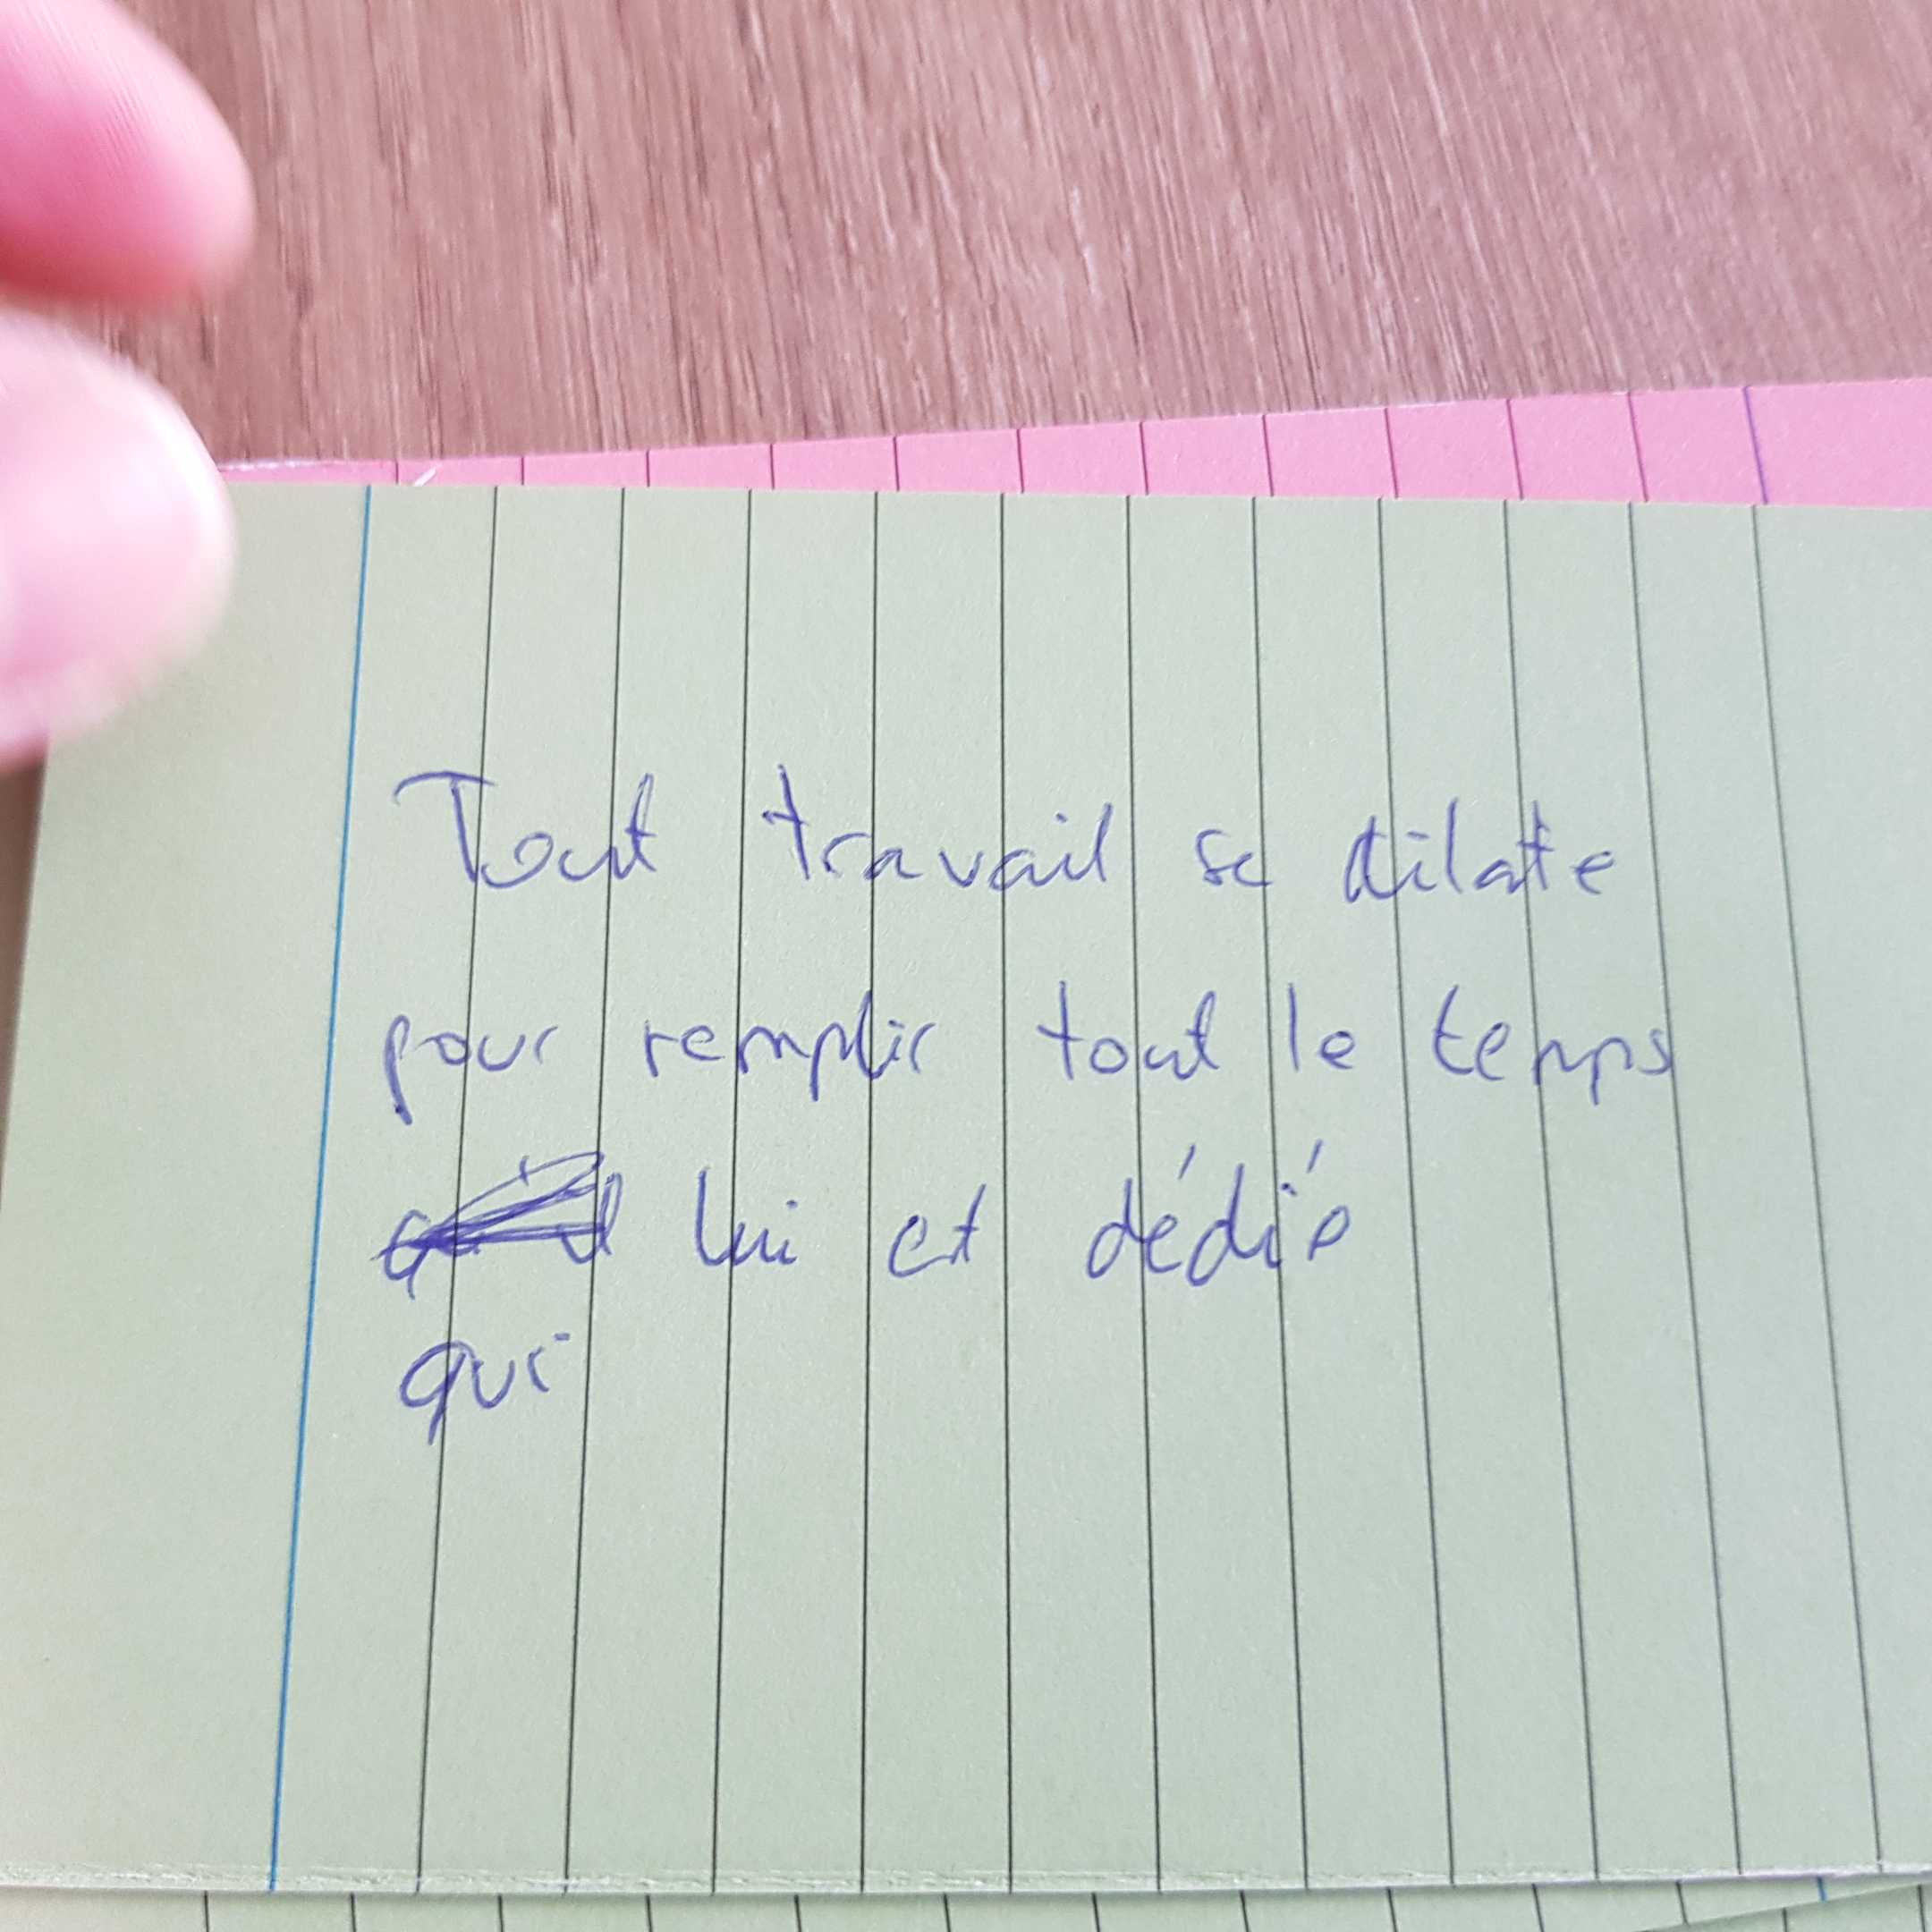 Tout travail se dilate
pour remplir tout le temps
lui et dédié
qui